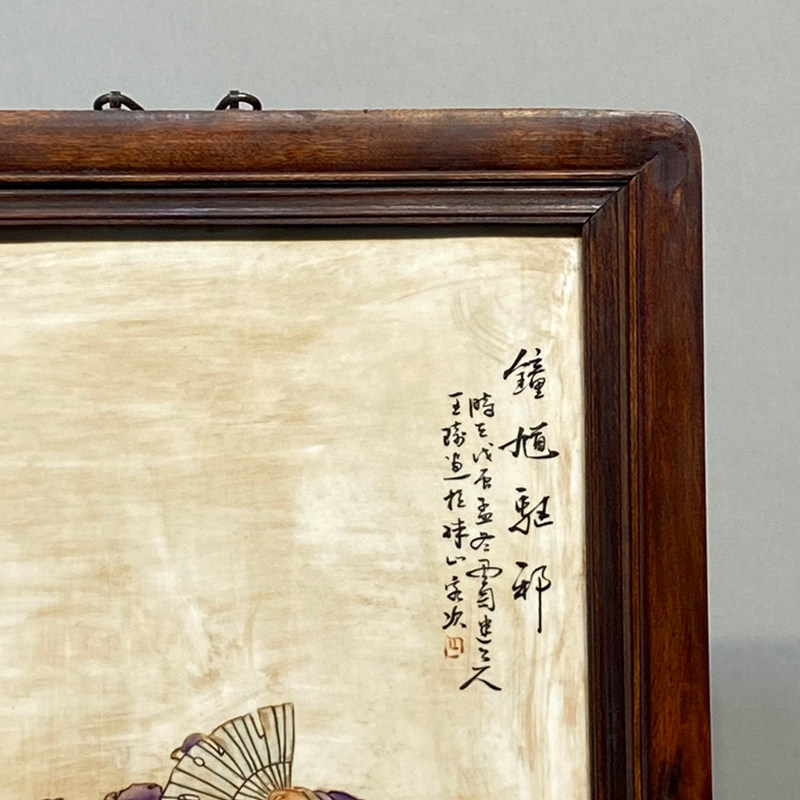 鐘馗驅邪
時在戊辰孟冬匋迷道人
王琦畫於珠山客次